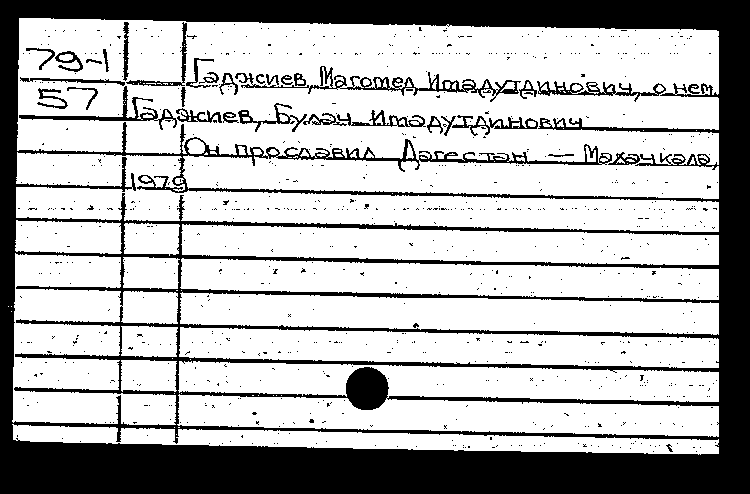 79-1 Гаджиев, Магомед Имадутдинович, о нем.
57 Гаджиев, Булач Имадутдинович
Он прославил Дагестан — Махачкала,
1979